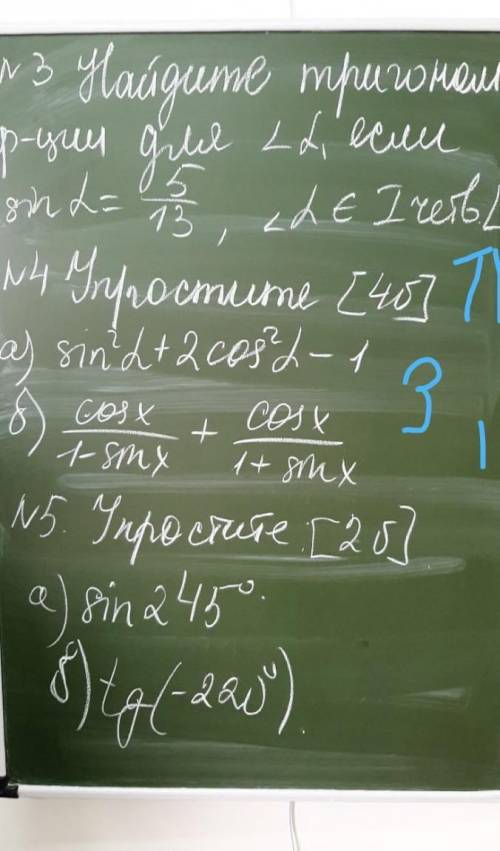 №3 Найдите тригоном
ф-ции для ∠α, если
sin α = 5/13, ∠α ∈ I четв
№4 Упростите [4б]
а) sin²α + 2cos²α - 1
б) cosx/1-sinx + cosx/1+sinx
3
№5. Упростите. [2б]
а) sin 245°.
б) tg(-220°).